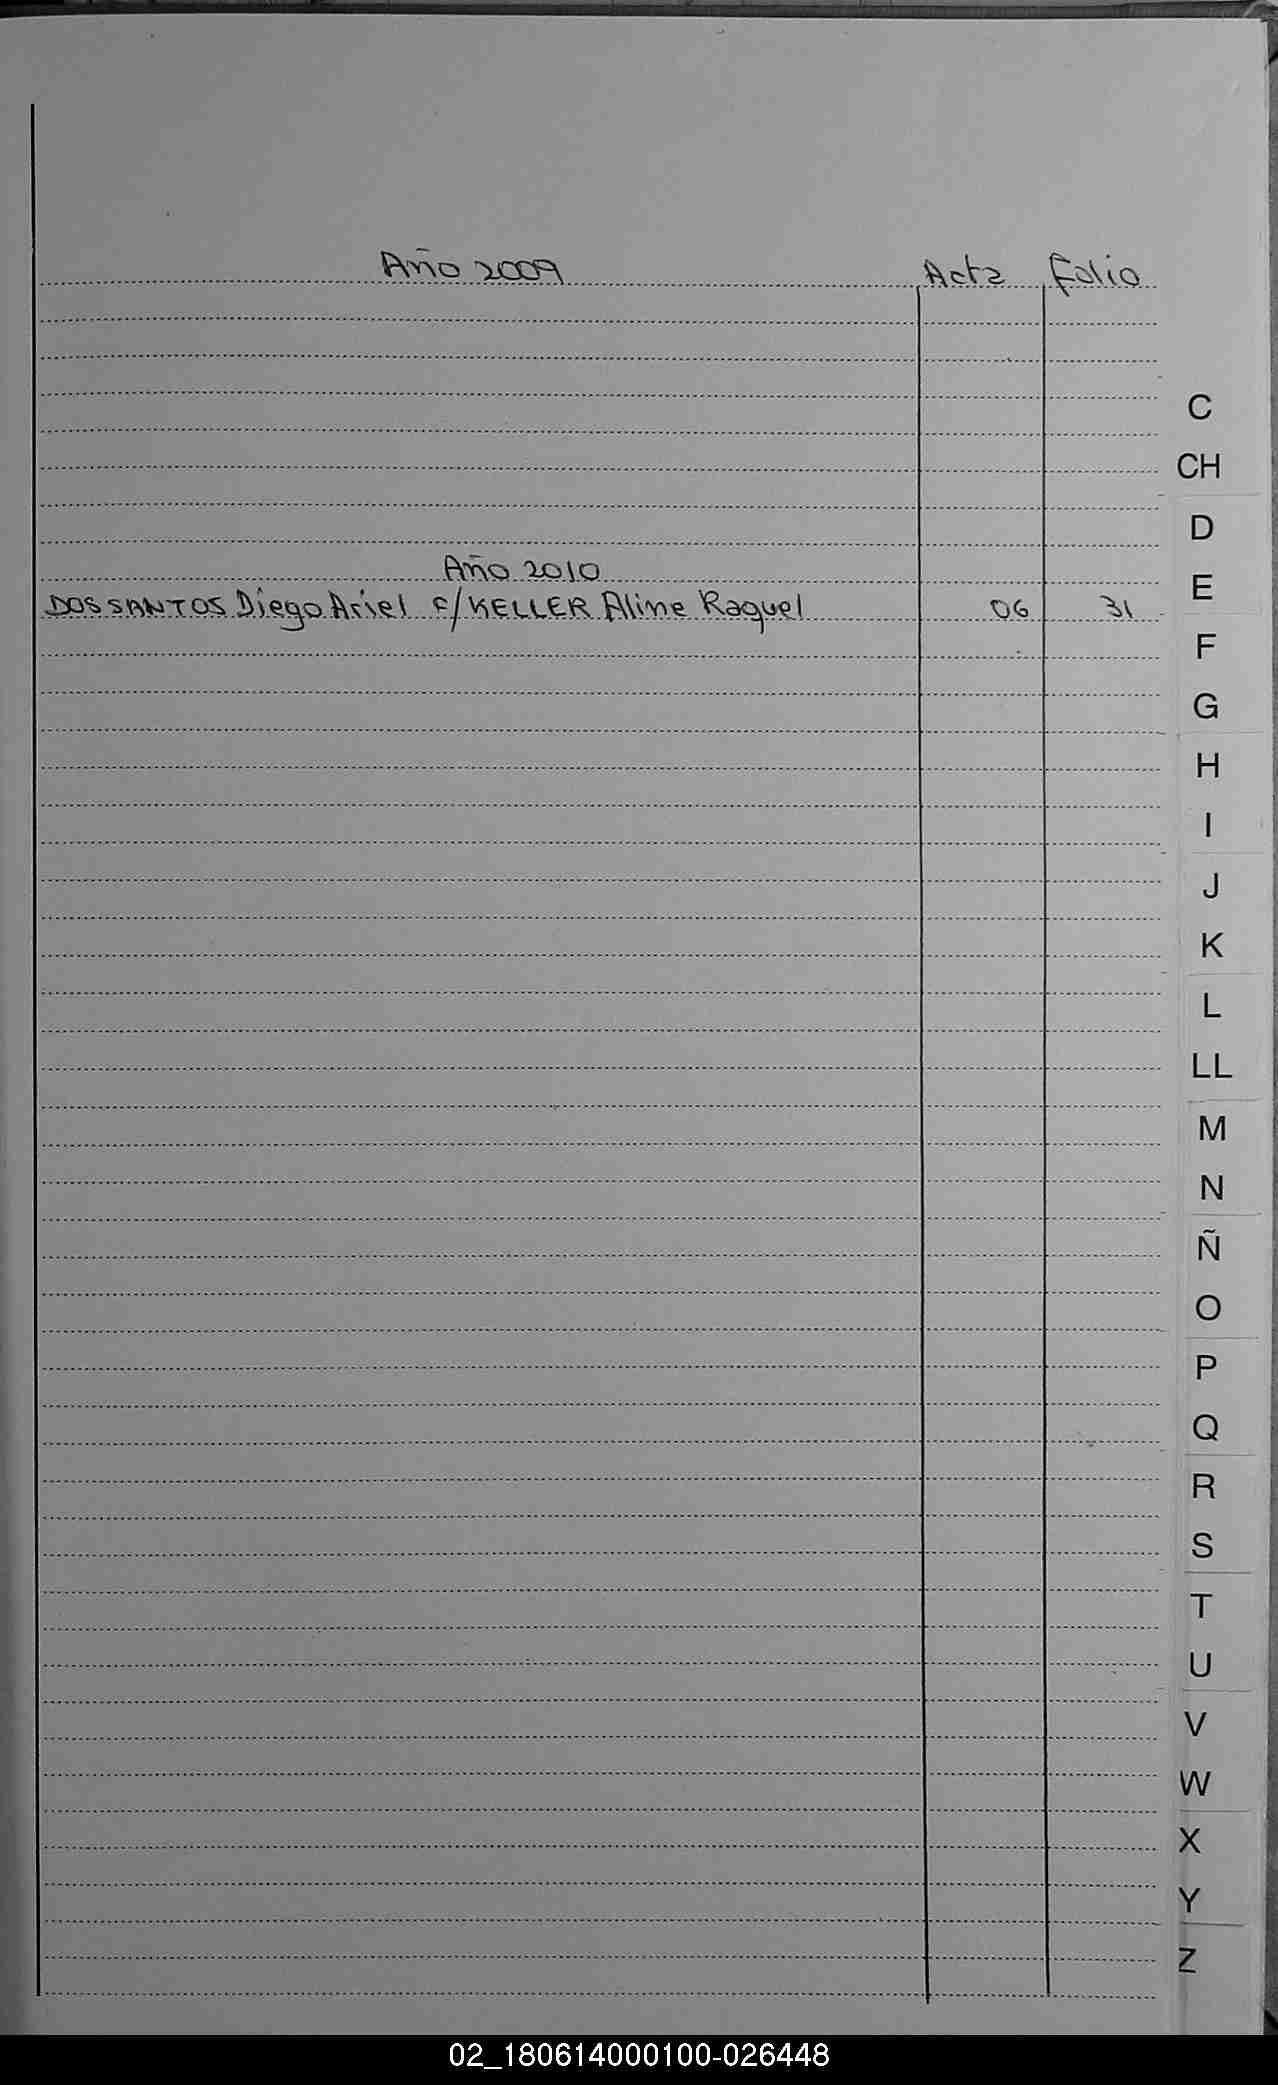 Año 2009 Acta Folio
Año 2010
DOS SANTOS Diego Ariel c/ KELLER Aline Raquel 06 31
C
CH
D
E
F
G
H
I
J
K
L
LL
M
N
Ñ
O
P
Q
R
S
T
U
V
W
X
Y
Z
02_180614000100-026448